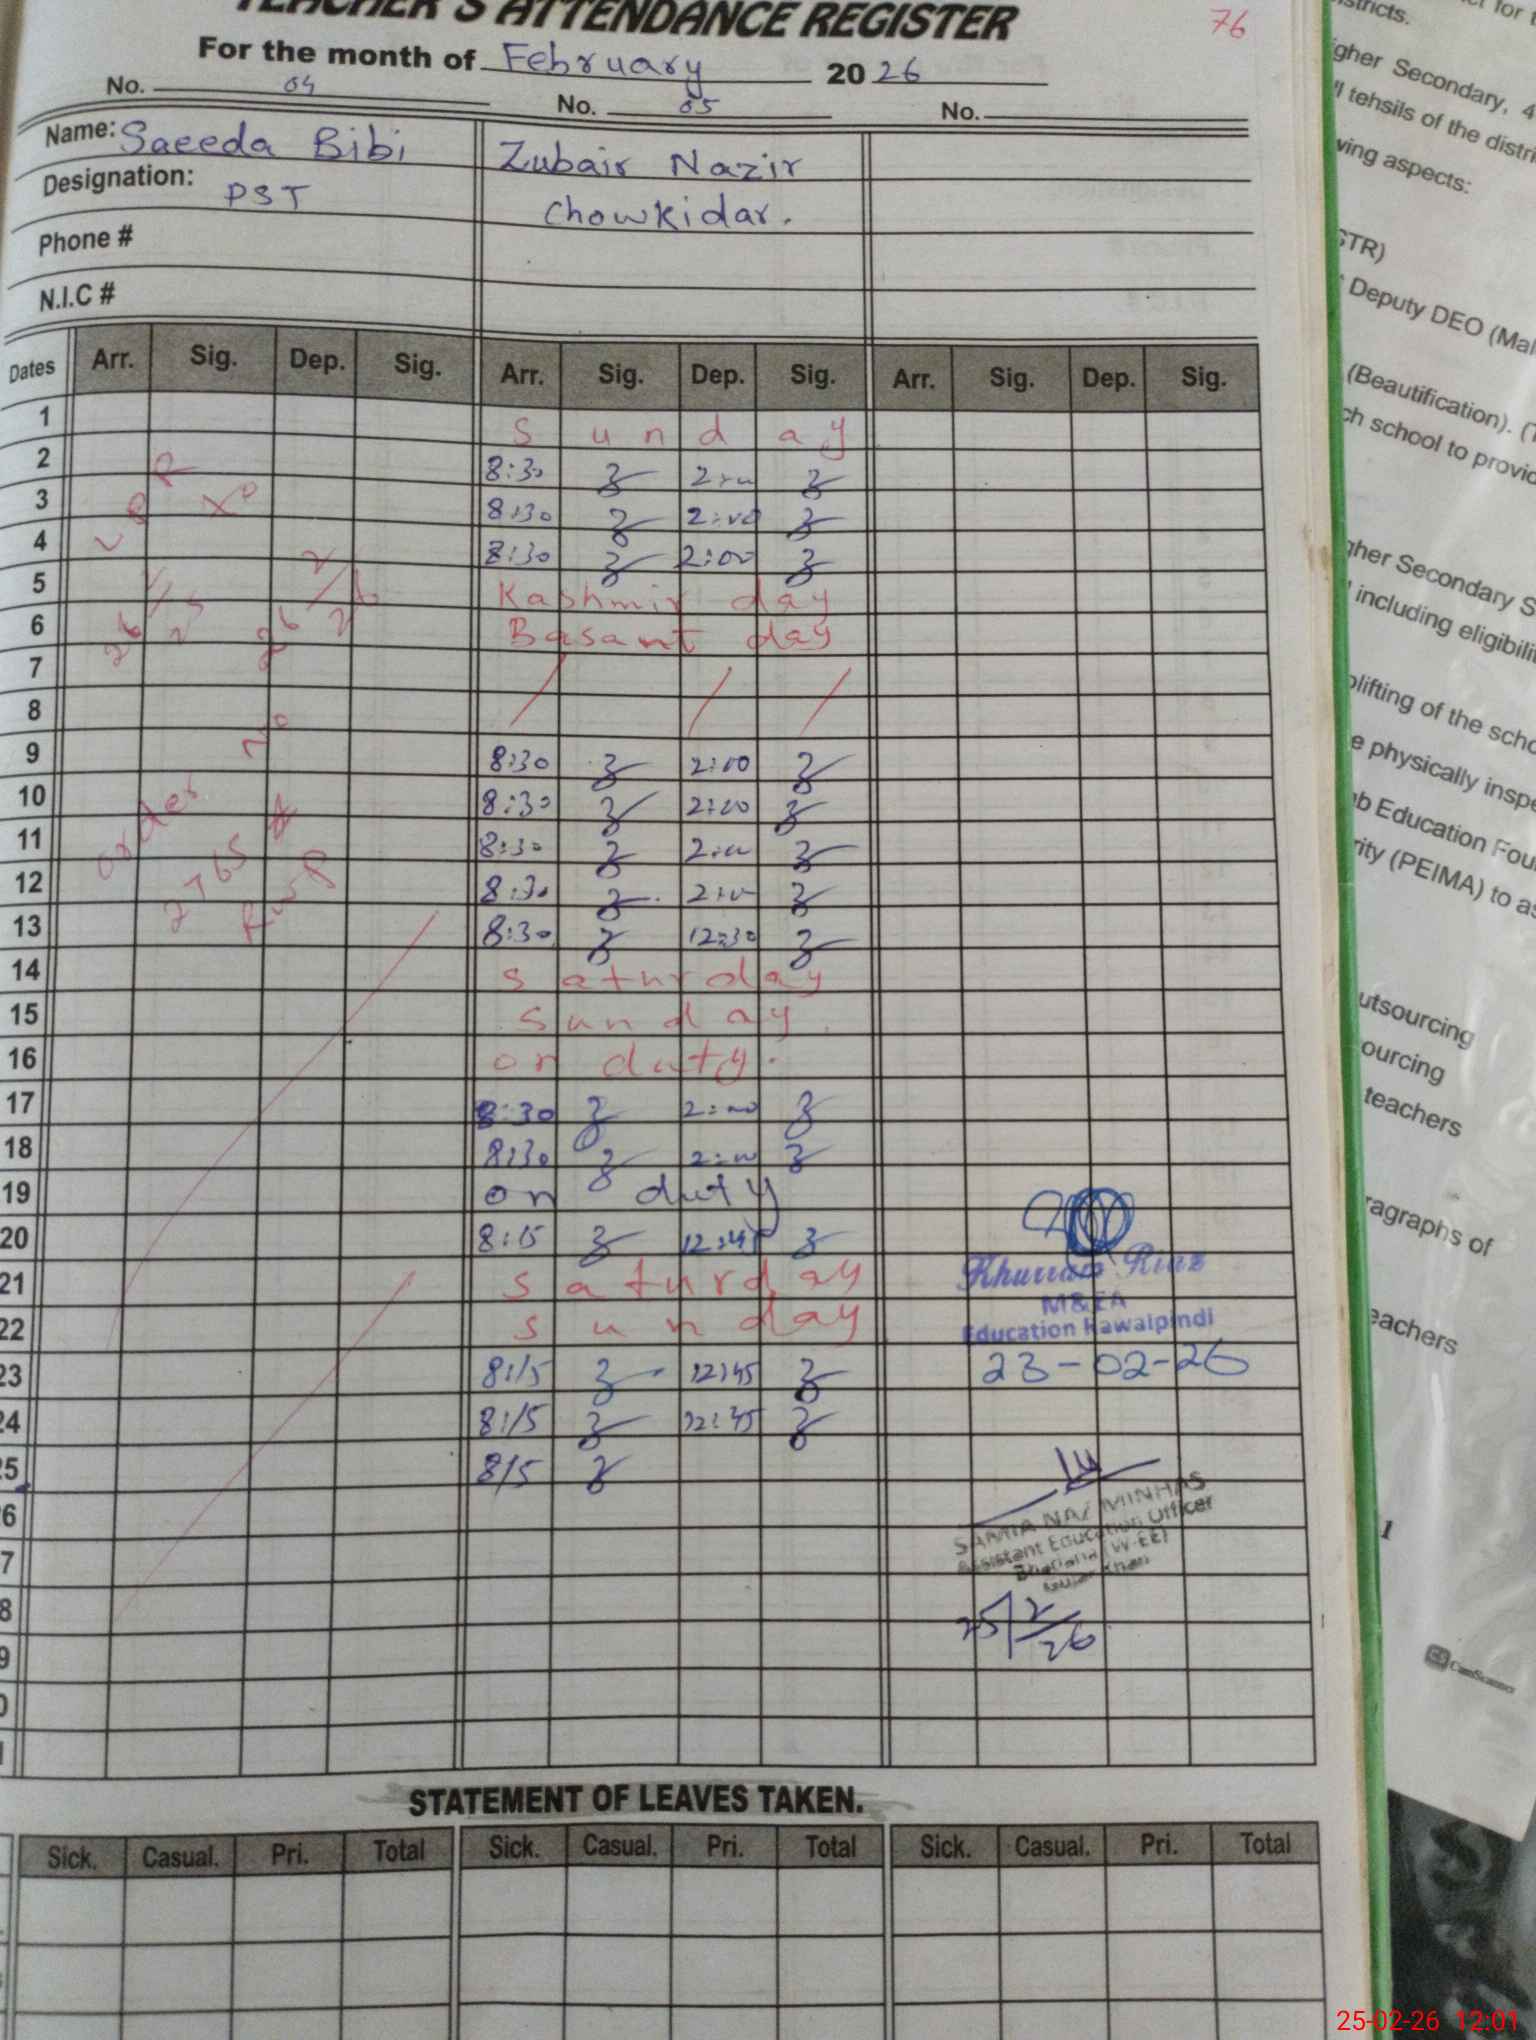 TEACHER'S ATTENDANCE REGISTER
76
For the month of February 2026
No. 04 No. 05 No.
Name: Saeeda Bibi Zubair Nazir
Designation: PST Chowkidar.
Phone #
N.I.C #
Dates Arr. Sig. Dep. Sig. Arr. Sig. Dep. Sig. Arr. Sig. Dep. Sig.
1 Sunday
2 8:30 2:00
3 8:30 2:00
4 8:30 2:00
5 Kashmir day
6 Basant day
7
8
9 8:30 2:00
10 8:30 2:00
11 8:30 2:00
12 8:30 2:00
13 8:30 12:30
14 Saturday
15 Sunday
16 on duty.
17 8:30 2:00
18 8:30 2:00
19 on duty
20 8:15 12:45
21 Saturday
22 Sunday
23 8:15 12:45
24 8:15 12:45
25 8:15
6
7
8
9
0
order No
2765
Rwp
Khurram Riaz
M&EA
Education Rawalpindi
23-02-26
SAMIA NAZ MINHAS
Assistant Education Officer
(W-EE)
25/2/26
STATEMENT OF LEAVES TAKEN.
Sick. Casual. Pri. Total Sick. Casual. Pri. Total Sick. Casual. Pri. Total
for
gher Secondary, 4
ll tehsils of the distri
wing aspects:
STR)
Deputy DEO (Mal
(Beautification). (T
ch school to provid
gher Secondary S
including eligibili
plifting of the scho
e physically inspe
b Education Fou
rity (PEIMA) to as
utsourcing
ourcing
teachers
ragraphs of
eachers
1
CS CamScanner
25-02-26 12:01